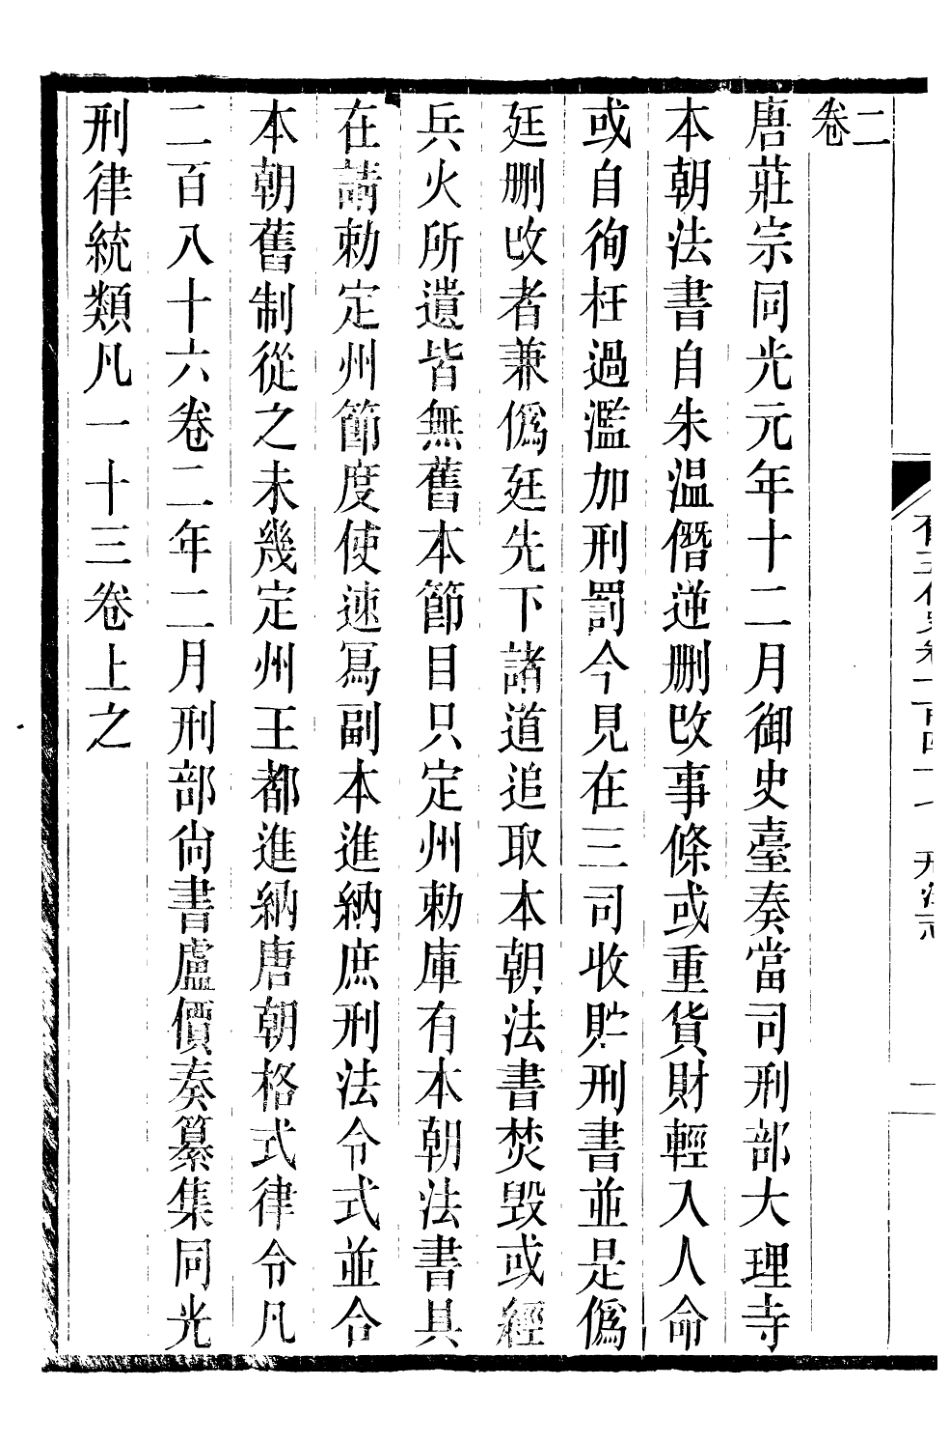 二
卷
唐莊宗同光元年十二月御史臺奏當司刑部大理寺
本朝法書自朱温僭逆删改事條或重貨財輕入人命
或自徇枉過濫加刑罰今見在三司收貯刑書並是僞
廷删改者兼僞廷先下諸道追取本朝法書焚毁或經
兵火所遺皆無舊本節目只定州勅庫有本朝法書具
在請勅定州節度使速寫副本進納庶刑法令式並合
本朝舊制從之未幾定州王都進納唐朝格式律令凡
二百八十六卷二年二月刑部尚書盧價奏纂集同光
刑律統類凡一十三卷上之